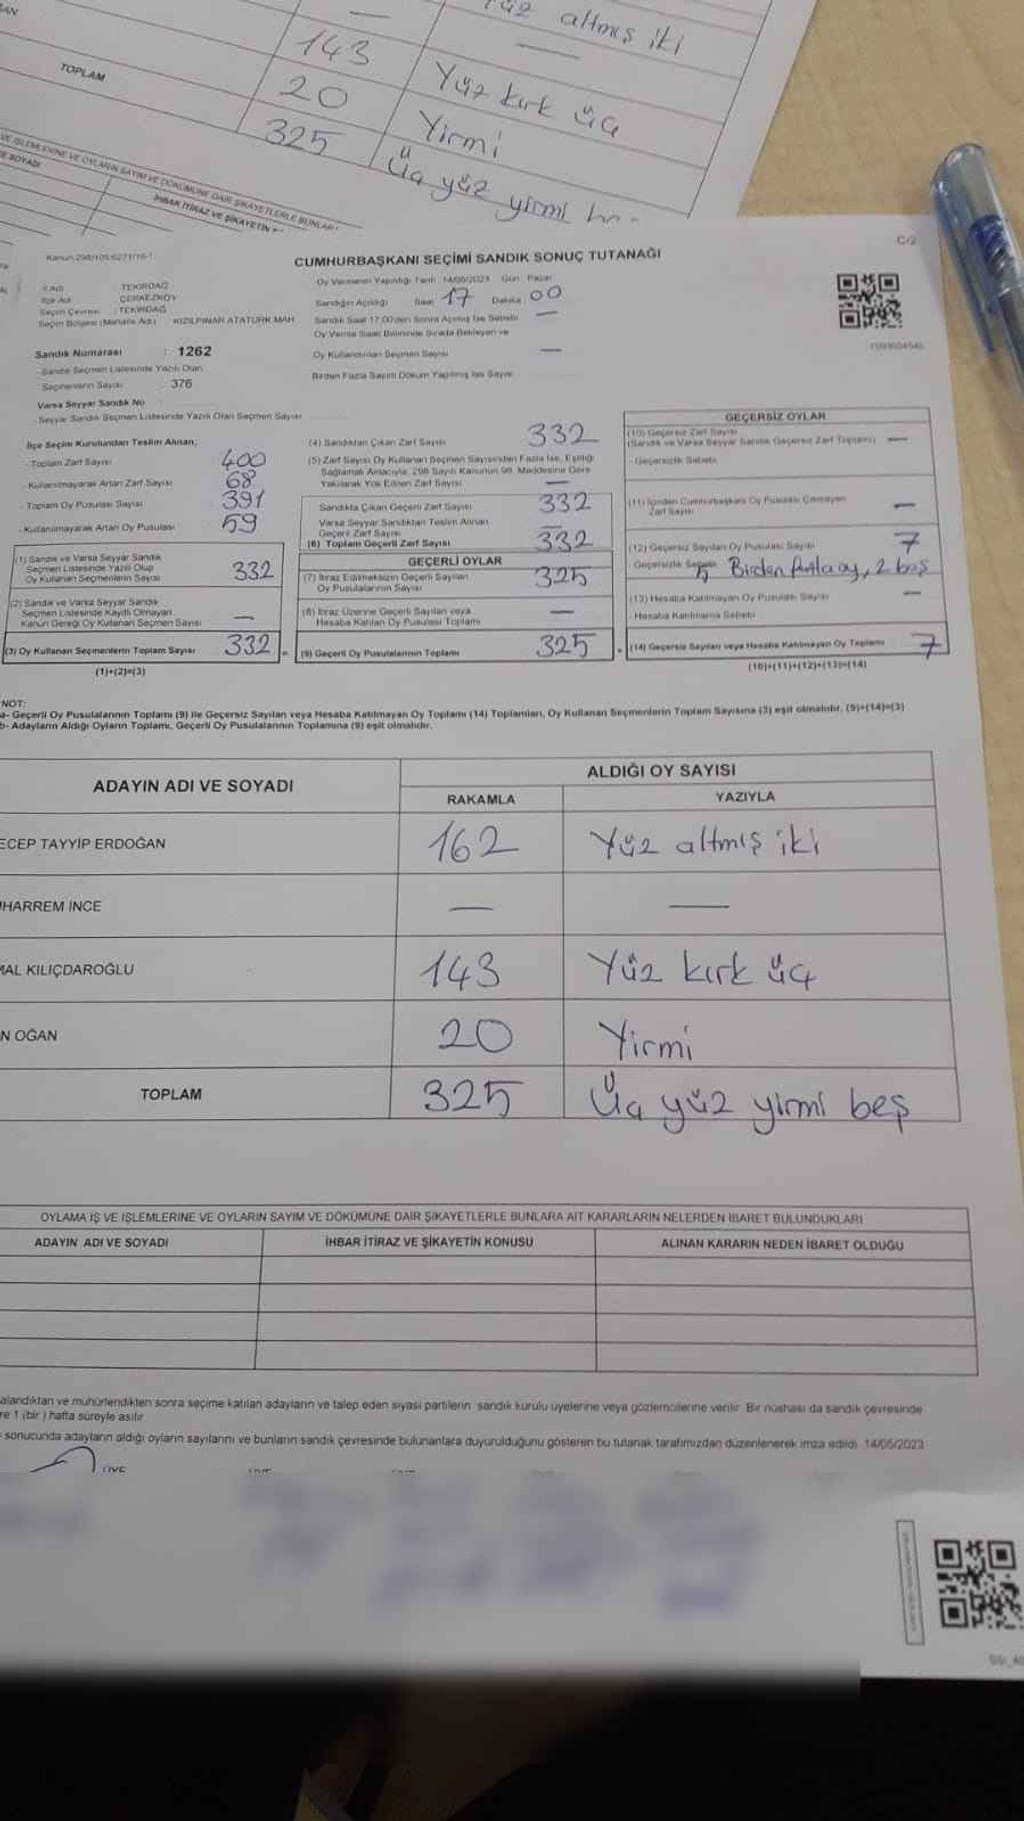 yüz altmış iki
143 Yüz kırk üç
20 Yirmi
TOPLAM 325 Üç yüz yirmi
VE İŞLEMLERİNE VE OYLARIN SAYIM VE DÖKÜMÜNE DAİR ŞİKAYETLERLE BUNLARA
İHBAR İTİRAZ VE ŞİKAYETİN
C/2
Kanun:298/105:6271/16-1
CUMHURBAŞKANI SEÇİMİ SANDIK SONUÇ TUTANAĞI
İl Adı : TEKİRDAĞ
İlçe Adı : ÇERKEZKÖY
Seçim Çevresi : TEKİRDAĞ
Seçim Bölgesi (Mahalle Adı) : KIZILPINAR ATATÜRK MAH
Sandık Numarası : 1262
- Sandık Seçmen Listesinde Yazılı Olan
Seçmenlerin Sayısı : 376
Varsa Seyyar Sandık No
- Seyyar Sandık Seçmen Listesinde Yazılı Olan Seçmen Sayısı
Oy Vermenin Yapıldığı Tarih 14/05/2023 Gün: Pazar
Sandığın Açıldığı Saat 17 Dakika 00
Sandık Saat 17.00'den Sonra Açılmış İse Sebebi —
Oy Verme Saati Bitiminde Sırada Bekleyen ve
Oy Kullandırılan Seçmen Sayısı —
Birden Fazla Sayım Döküm Yapılmış İse Sayısı
İlçe Seçim Kurulundan Teslim Alınan;
- Toplam Zarf Sayısı 400
- Kullanılmayarak Artan Zarf Sayısı 68
- Toplam Oy Pusulası Sayısı 391
- Kullanılmayarak Artan Oy Pusulası 59
(1) Sandık ve Varsa Seyyar Sandık
Seçmen Listesinde Yazılı Olup
Oy Kullanan Seçmenlerin Sayısı 332
(2) Sandık ve Varsa Seyyar Sandık
Seçmen Listesinde Kayıtlı Olmayan
Kanun Gereği Oy Kullanan Seçmen Sayısı —
(3) Oy Kullanan Seçmenlerin Toplam Sayısı 332
(1)+(2)=(3)
(4) Sandıktan Çıkan Zarf Sayısı 332
(5) Zarf Sayısı Oy Kullanan Seçmen Sayısından Fazla İse, Eşitliği
Sağlamak Amacıyla; 298 Sayılı Kanunun 98. Maddesine Göre
Yakılarak Yok Edilen Zarf Sayısı —
Sandıkta Çıkan Geçerli Zarf Sayısı 332
Varsa Seyyar Sandıktan Teslim Alınan
Geçerli Zarf Sayısı —
(6) Toplam Geçerli Zarf Sayısı 332
GEÇERLİ OYLAR
(7) İtiraz Edilmeksizin Geçerli Sayılan
Oy Pusulalarının Sayısı 325
(8) İtiraz Üzerine Geçerli Sayılan veya
Hesaba Katılan Oy Pusulası Toplamı —
(9) Geçerli Oy Pusulalarının Toplamı 325
GEÇERSİZ OYLAR
(10) Geçersiz Zarf Sayısı
(Sandık ve Varsa Seyyar Sandık Geçersiz Zarf Toplamı) —
- Geçersizlik Sebebi
(11) İçinden Cumhurbaşkanı Oy Pusulası Çıkmayan
Zarf Sayısı —
(12) Geçersiz Sayılan Oy Pusulası Sayısı 7
Geçersizlik Sebebi 5 Birden fazla oy, 2 boş
(13) Hesaba Katılmayan Oy Pusulası Sayısı —
- Hesaba Katılmama Sebebi
(14) Geçersiz Sayılan veya Hesaba Katılmayan Oy Toplamı 7
(10)+(11)+(12)+(13)=(14)
NOT:
a- Geçerli Oy Pusulalarının Toplamı (9) ile Geçersiz Sayılan veya Hesaba Katılmayan Oy Toplamı (14) Toplamları, Oy Kullanan Seçmenlerin Toplam Sayısına (3) eşit olmalıdır. (9)+(14)=(3)
b- Adayların Aldığı Oyların Toplamı, Geçerli Oy Pusulalarının Toplamına (9) eşit olmalıdır.
ADAYIN ADI VE SOYADI
ALDIĞI OY SAYISI
RAKAMLA YAZIYLA
ECEP TAYYİP ERDOĞAN 162 Yüz altmış iki
UHARREM İNCE — —
MAL KILIÇDAROĞLU 143 Yüz kırk üç
N OĞAN 20 Yirmi
TOPLAM 325 Üç yüz yirmi beş
OYLAMA İŞ VE İŞLEMLERİNE VE OYLARIN SAYIM VE DÖKÜMÜNE DAİR ŞİKAYETLERLE BUNLARA AİT KARARLARIN NELERDEN İBARET BULUNDUKLARI
ADAYIN ADI VE SOYADI İHBAR İTİRAZ VE ŞİKAYETİN KONUSU ALINAN KARARIN NEDEN İBARET OLDUĞU
alandıktan ve mühürlendikten sonra seçime katılan adayların ve talep eden siyasi partilerin sandık kurulu üyelerine veya gözlemcilerine verilir. Bir nüshası da sandık çevresinde
re 1 (bir) hafta süreyle asılır
sonucunda adayların aldığı oyların sayılarını ve bunların sandık çevresinde bulunanlara duyurulduğunu gösteren bu tutanak tarafımızdan düzenlenerek imza edildi 14/05/2023